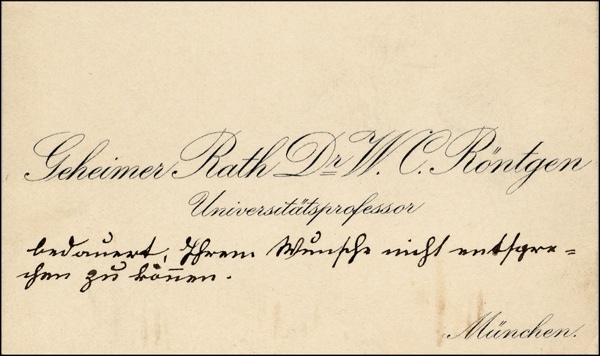 Geheimer Rath Dr W. C. Röntgen
Universitätsprofessor
bedauert, Ihrem Wunsche nicht entspre-
chen zu können.
München.